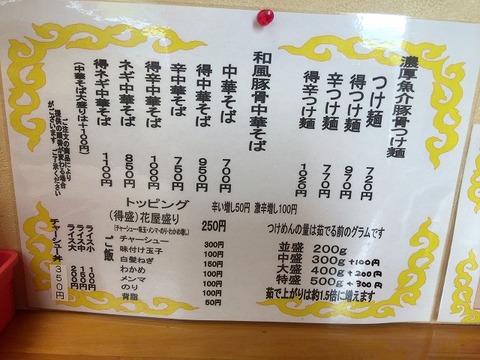 濃厚魚介豚骨つけ麺
つけ麺 720円
得つけ麺 970円
辛つけ麺 770円
得辛つけ麺 1020円
和風豚骨中華そば
中華そば 700円
得中華そば 950円
辛中華そば 750円
得辛中華そば 1000円
ネギ中華そば 850円
得ネギ中華そば 1100円
(中華そば大盛りは+100円)
ご注文の商品により
提供の順番が変わる場合
がございます
ご了承ください
トッピング
(得盛)花屋盛り 250円
(チャーシュー・味玉・メンマ・のり・わかめ増し)
チャーシュー 300円
味付け玉子 100円
白髪ねぎ 150円
わかめ 100円
メンマ 100円
のり 100円
背脂 50円
ご飯
ライス小 100円
ライス中 150円
ライス大 200円
チャーシュー丼 350円
辛い増し50円 激辛増し100円
つけめんの量は茹でる前のグラムです
並盛 200g
中盛 300g +100円
大盛 400g +200円
特盛 500g +300円
茹で上がりは約1.5倍に増えます